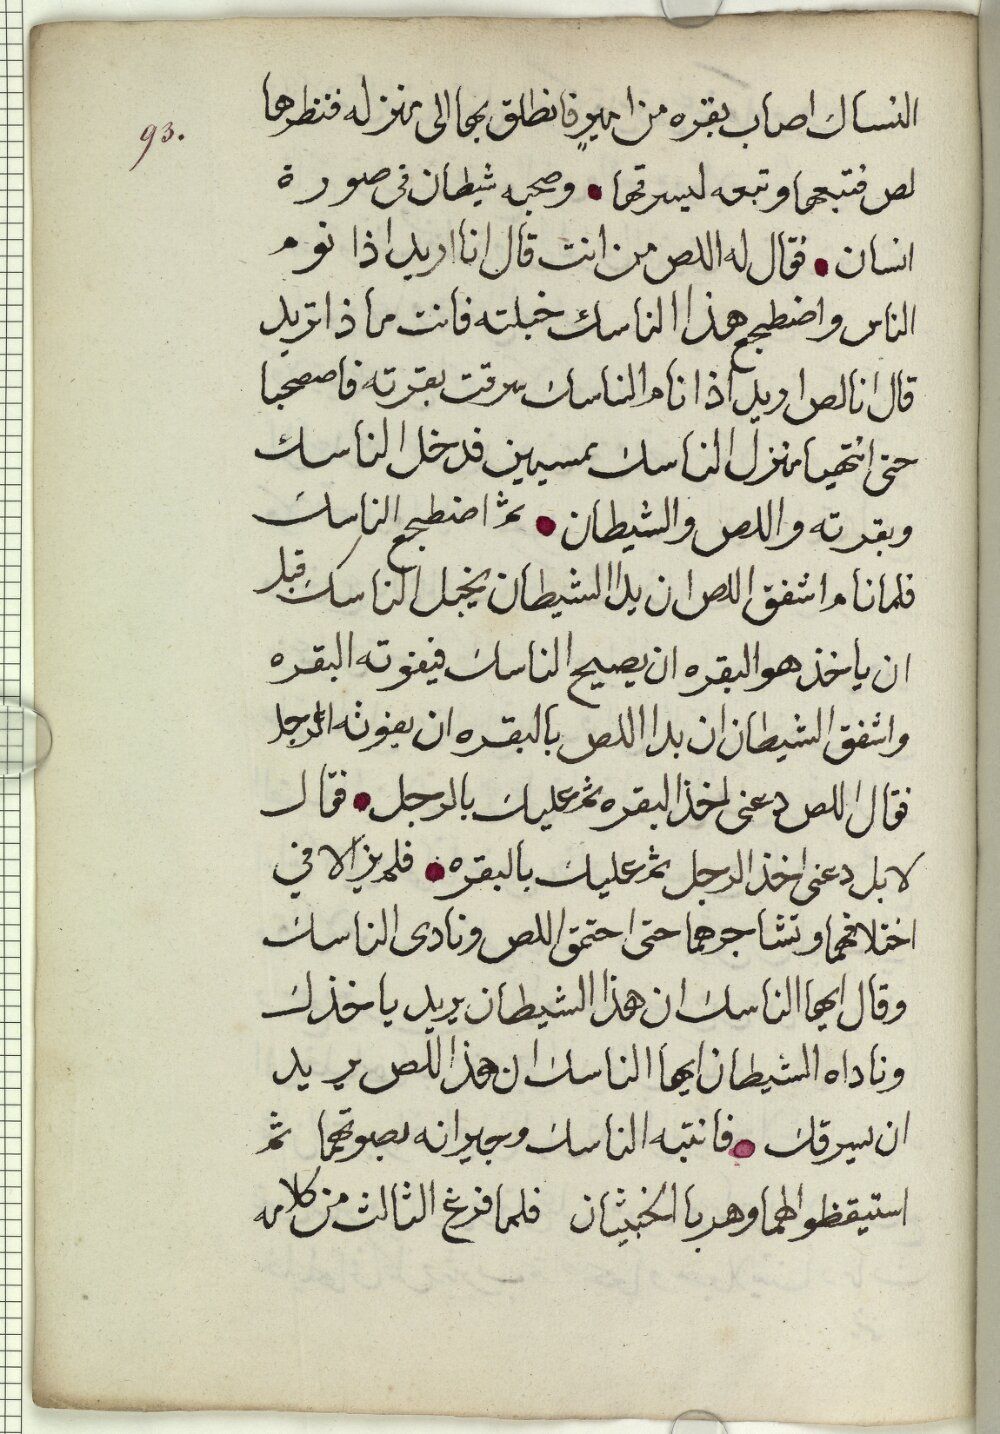 93.
النساك اصاب بقره من امير فانطلق بها الى منزله فنظرها
لص فتبعها وتبعه ليسرقها • وصحبه شيطان فى صورة
انسان • فقال له اللص من انت قال انا اريد اذا نوم
الناس واضطجع هذا الناسك خبلته فانت ما ذا تريد
قال انا لص اريد اذا نام الناسك سرقت بقرته فاصطحبا
حتى انتهيا منزل الناسك ممسيين فدخل الناسك
وبقرته واللص والشيطان • ثم اضطجع الناسك
فلما نام اشفق اللص ان بدا الشيطان يخبل الناسك قبل
ان ياخذ هو البقره ان يصيح الناسك فيفوته البقره
واشفق الشيطان ان بدا اللص بالبقره ان يفوته الرجل
فقال اللص دعنى اخذ البقره ثم عليك بالرجل • فقال
لا بل دعنى اخذ الرجل ثم عليك بالبقره • فلم يزالا في
اختلافهما وتشاجرهما حتى احتمق اللص ونادى الناسك
وقال ايها الناسك ان هذا الشيطان يريد ياخذك
وناداه الشيطان ايها الناسك ان هذا اللص يريد
ان يسرقك • فانتبه الناسك وجيرانه بصوتهما ثم
استيقظوا لهما وهربا الخبيثان فلما فرغ الثالث من كلامه